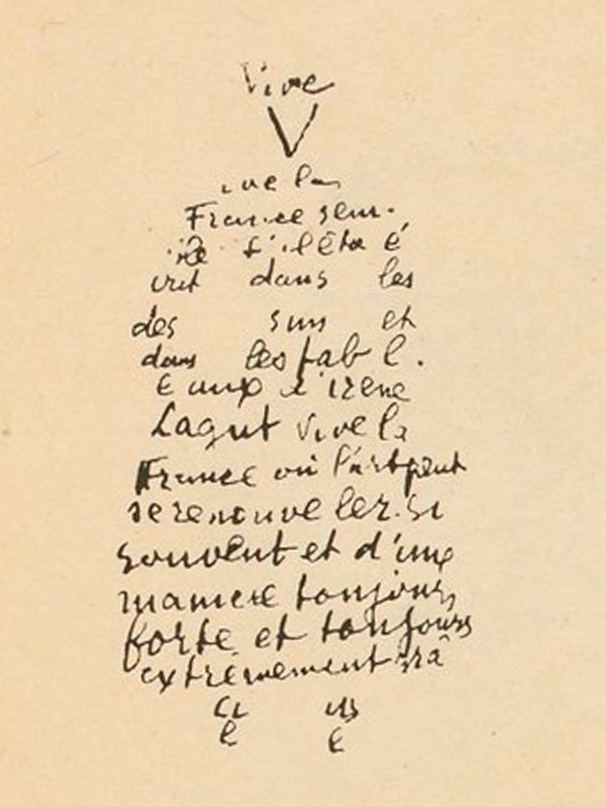 Vive
V
ive la
France
s'il
crit dans les
des sins et
dans les tabl.
eaux d'irène
Lagut Vive la
France où l'art peut
se renouveler si
souvent et d'une
manière toujours
forte et toujours
extrêmement grâ
ci us
e e